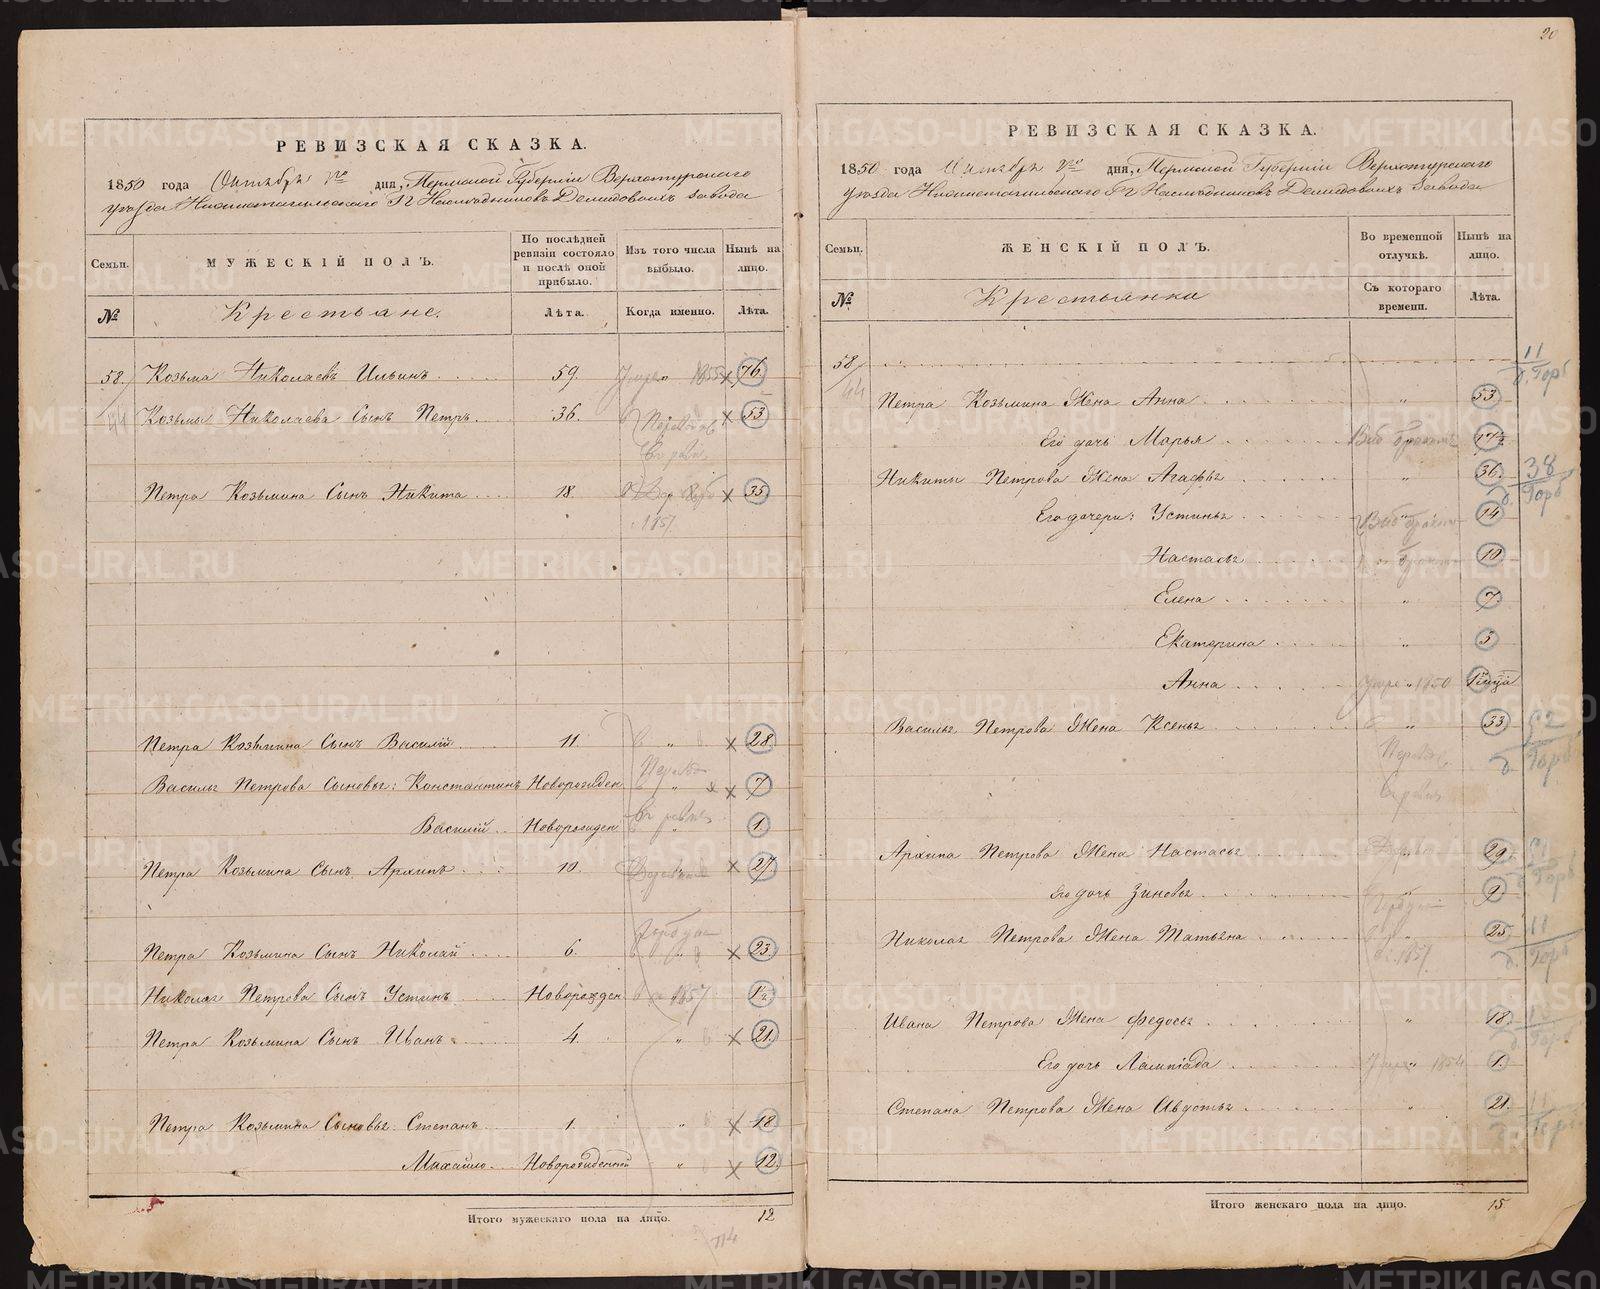 20
РЕВИЗСКАЯ СКАЗКА.
1850 года Октября дня, Пермской Губерніи Верхотурскаго
уѣзда Нижнетагильскаго Гг Наслѣдниковъ Демидовыхъ завода
Семьи.
МУЖЕСКІЙ ПОЛЪ.
По послѣдней ревизіи состояло и послѣ оной прибыло.
Изъ того числа выбыло.
Нынѣ на лицо.
№
Крестьяне.
Лѣта.
Когда именно.
Лѣта.
58. Козьма Николаевъ Ильинъ 59. 1855 76.
44 Козьмы Николаева Сынъ Петръ 36. 53
Петра Козьмина Сынъ Никита 18. 35
1857
Петра Козьмина Сынъ Василій 11. 28.
Василья Петрова Сыновья: Константинъ Новорожден. 7
Василій Новорожден 1.
Петра Козьмина Сынъ Архипъ 10. 27
Петра Козьмина Сынъ Николай 6. 23.
Николая Петрова Сынъ Устинъ Новорожден 1857 1½
Петра Козьмина Сынъ Иванъ 4. 21.
Петра Козьмина Сыновья Степанъ 1. 18
Михайло Новорожденный 12.
Итого мужескаго пола на лицо. 12
РЕВИЗСКАЯ СКАЗКА.
1850 года Октября дня, Пермской Губерніи Верхотурскаго
уѣзда Нижнетагильскаго Гг Наслѣдниковъ Демидовыхъ завода
Семьи.
ЖЕНСКІЙ ПОЛЪ.
Во временной отлучкѣ.
Нынѣ на лицо.
№
Крестьянки
Съ котораго времени.
Лѣта.
58
44
Петра Козьмина Жена Анна " 53
Его дочь Марья 17½
Никиты Петрова Жена Агафья " 36.
Его дочери: Устинья 14
Настасья 10
Елена " 7
Екатерина " 3
Анна 1850
Василья Петрова Жена Ксенья " 33
Архипа Петрова Жена Настасья 29
Его дочь Зиновья 9
Николая Петрова Жена Татьяна 25
1857
Ивана Петрова Жена Федосья " 18.
Его дочь Лампіада 1854 1.
Степана Петрова Жена Авдотья " 21.
Итого женскаго пола на лицо. 15
METRIKI.GASO-URAL.RU